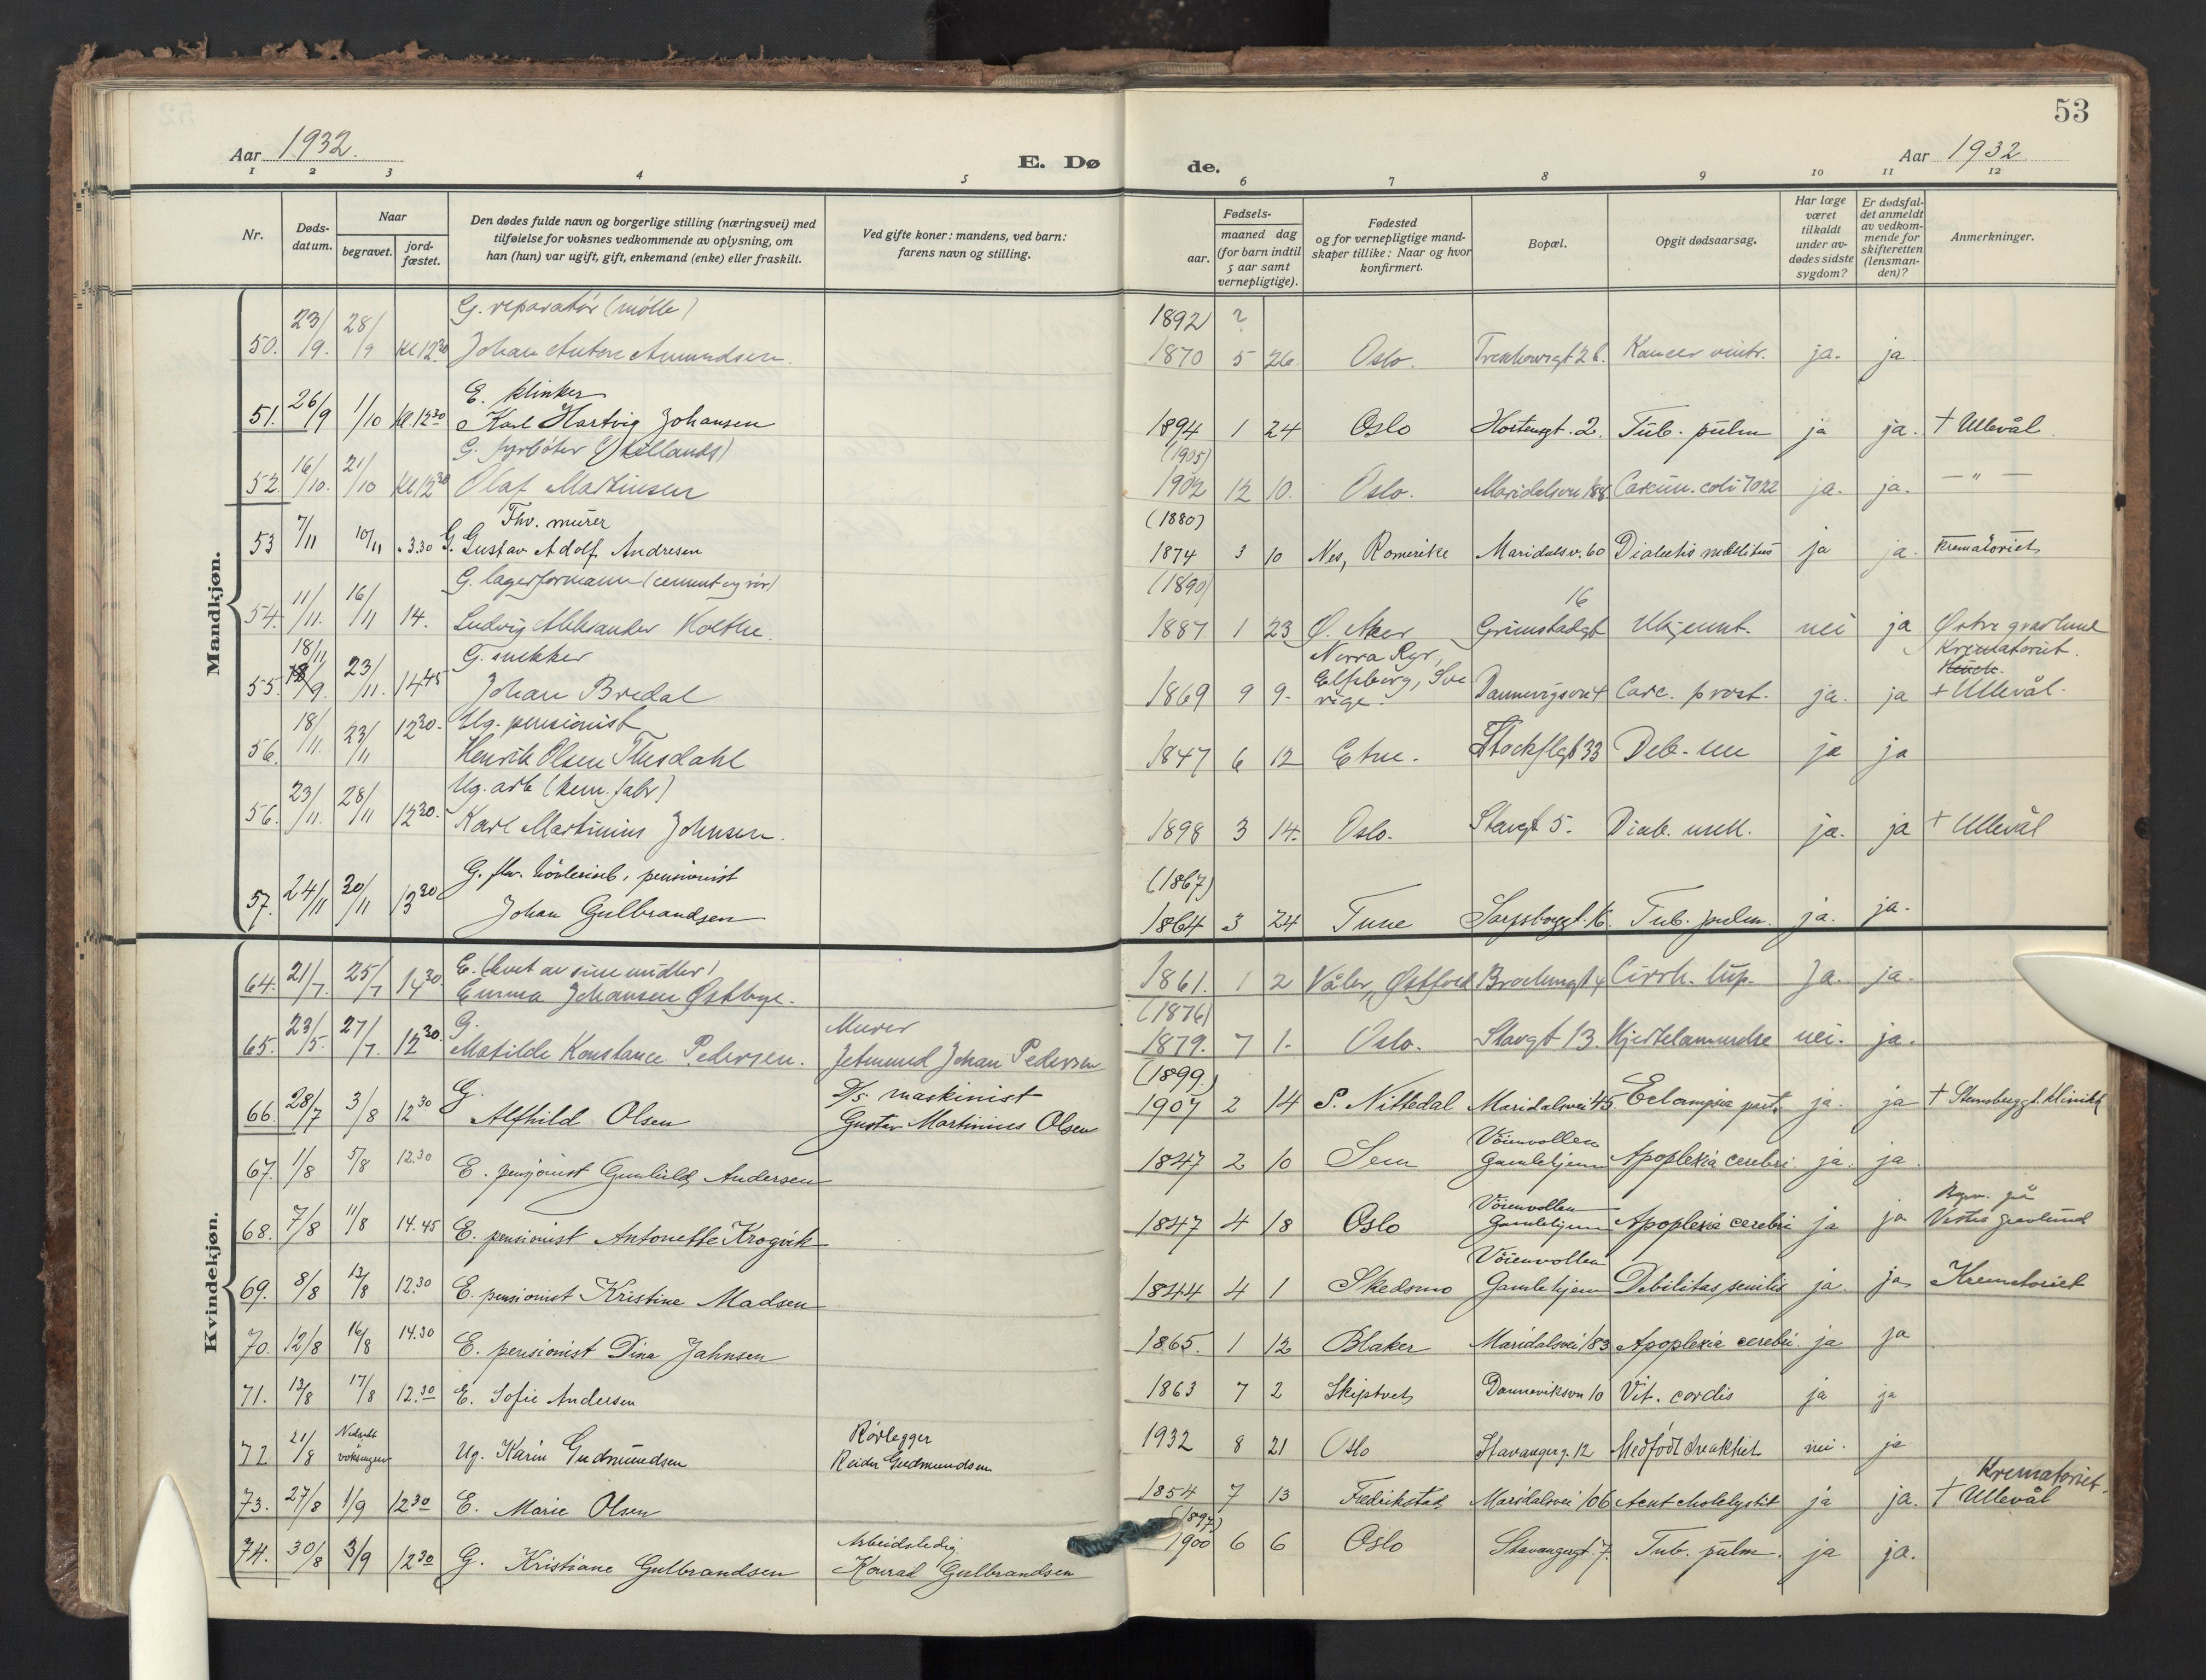 53
Aar 1932.
E. Dø de.
Aar 1932
1 2 3 4 5 6 7 8 9 10 11 12
Nr.
Døds-
datum.
Naar
begravet.
jord-
fæstet.
Den dødes fulde navn og borgerlige stilling (næringsvei) med
tilføielse for voksnes vedkommende av oplysning, om
han (hun) var ugift, gift, enkemand (enke) eller fraskilt.
Ved gifte koner: mandens, ved barn:
farens navn og stilling.
Fødsels-
aar.
maaned dag
(for barn indtil
5 aar samt
vernepligtige).
Fødested
og for vernepligtige mand-
skaper tillike: Naar og hvor
konfirmert.
Bopæl.
Opgit dødsaarsag.
Har læge
været
tilkaldt
under av-
dødes sidste
sygdom?
Er dødsfal-
det anmeldt
av vedkom-
mende for
skifteretten
(lensman-
den)?
Anmerkninger.
Mandkjøn.
G. reparatør (mølle) 1892 ?
50. 23/9. 28/9 kl 12 30 Johan Anton Amundsen. 1870 5 26 Oslo. ja. ja
E. klinker
51. 26/9 1/10 kl. 12 30 Karl Hartvig Johansen 1894 1 24 Oslo Hortensgt. 2. Tub. pulm ja ja. † Ullevål.
G. fyrbøter (1905)
52. 16/10. 21/10 kl 12 30 Olaf Martinsen 1902 12 10. Oslo. ja. ja. — " —
Fhv. murer (1880)
53 7/11 10/11 " 3.30 G. Gustav Adolf Andresen 1874 3 10 Nes, Romerike Maridalsv. 60 ja ja. Krematoriet
G. lagerformann (cement og rør) (1890) 16
54. 11/11. 16/11 14. Ludvig Aleksander Kolthe. 1887 1 23 Ø. Aker Grimstadgt Ukjennt. nei ja Østre gravlund
18/11 G. snekker Norra Ryr, Krematoriet.
55. 23/11. 14 45 Johan Bredal 1869 9 9. Elfsborg, Sve
rige. Carc. prost. ja. ja † Ullevål.
18/11. 12 30. Ug. pensionist
56. 23/11 Henrik Olsen 1847 6 12 33 Deb. ja ja
Ug. arb (kem. fabr)
56. 23/11. 28/11 12 30. Karl Martinius Johnsen. 1898 3 14. Oslo. Stavgt 5. Diab. mell. ja. ja † Ullevål
G. fhv. pensionist (1867)
57. 24/11 30/11 13 30 Johan Gulbrandsen 1864 3 24 Tune Sarpsborggt. 16. Tub. pulm. ja. ja.
Kvindekjøn.
E. (levet av sine midler)
64. 21/7. 25/7 14 30 Emma Johansen Østbye. 1861. 1 2 Våler, Østfold Cirrh. hep. Ja. ja.
G. Murer (1876)
65. 23/5. 27/7. 12 30. Matilde Konstance Pedersen. Jetmund Johan Pedersen 1879. 7 1. Oslo. Stavgt 13. Hjertelammelse nei. ja.
G. D/s maskinist (1899.)
66. 28/7 3/8 12 30 Alfhild Olsen Gustav Martinius Olsen 1907 2 14 S. Nittedal Maridalsvei 45. Eclampsia part. ja. ja † Stensberggt. klinikk
Vöienvollen
67. 1/8 5/8 12.30 E. pensjonist Gunhild Andersen 1847 2 10 Sem Gamlehjem Apoplexia cerebri ja. ja.
Vöienvollen
68. 7/8 11/8 14.45 E. pensionist Antonette Krogvik 1847 4 18 Oslo Gamlehjem Apoplexia cerebri ja ja på
Vestre gravlund
Vöienvollen
69. 8/8 13/8 12.30 E. pensionist Kristine Madsen 1844 4 1 Skedsmo Gamlehjem Debilitas senilis ja. ja Krematoriet
70. 12/8 16/8 14.30 E. pensionist Dina Jahnsen 1865. 1 12 Blaker Maridalsvei 183 Apoplexia cerebri. ja ja
71. 13/8 17/8 12.30 E. Sofie Andersen 1863 7 2 Skiptvet Danneviksvn 10 Vit. cordis ja ja
Rørlegger
72 21/8 Ug. Karin Gudmundsen Reidar Gudmundsen 1932 8 21 Oslo Stavangerg. 12 Medfödt svakhet nei. ja
Krematoriet.
73. 27/8 1/9 12 30 E. Marie Olsen 1854 7 13 Fredrikstad Maridalsvei 106 ja ja. † Ullevål
Arbeidsledig (1897)
74. 30/8 3/9 12 30 G. Kristiane Gulbrandsen Konrad Gulbrandsen 1900 6 6 Oslo Stavangergt. 7. Tub. pulm. ja ja.